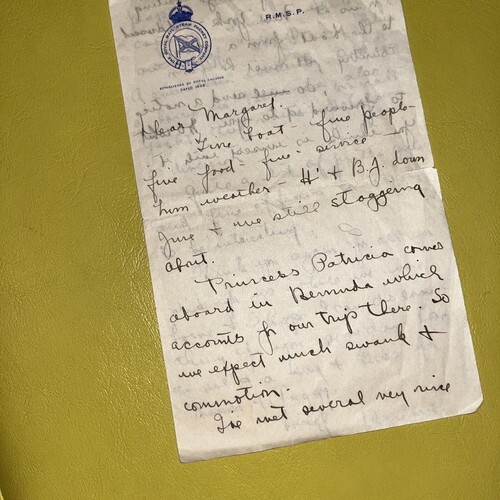 THE ROYAL MAIL STEAM PACKET COMPANY
R.M.S.P.
ESTABLISHED BY ROYAL CHARTER
DATED 1839
Dear Margaret.
Fine boat - fine people -
fine food - fine service -
hum weather - H + B.J. down
June + me still staggering
about.
Princess Patricia comes
aboard in Bermuda which
accounts for our trip there. So
we expect much swank +
commotion.
I've met several very nice